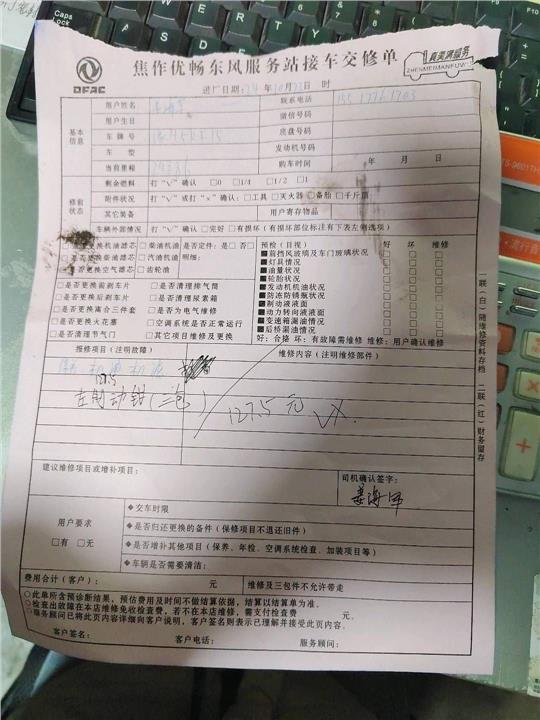 DFAC
焦作优畅东风服务站接车交修单
真美满服务
ZHENMEIMANFUW
进厂日期: 24 年 10月 日 时
基本信息
用户姓名
联系电话
用户生日
微信号码
车牌号
底盘号码
车型
发动机号码
当前里程
购车时间 年 月 日
修前状态
剩余燃料 打“√”确认 □0 □1/4 □1/2 □1
附件状况 打“√”或打“×”确认: □工具 □灭火器 □备胎 □千斤顶
其它装备 用户寄存物品
车辆外部情况 打“√”确认 □完好 □有损坏(有损坏部位标注在下表左侧选项)
是否更换机油滤芯 □柴油机油 是否定件: □是 □否
是否更换柴油滤芯 □汽油机油 明细:
是否更换空气滤芯 □齿轮油
□是否更换前刹车片 □是否清理排气筒
□是否更换后刹车片 □是否清理尿素箱
□是否更换离合三件套 □是否为电气维修
□是否更换火花塞 □空调系统是否正常运行
□是否清理节气门 □其它项目维修及更换
预检(目视) 好 坏 维修
■前挡风玻璃及车门玻璃状况
■灯具情况
■油量状况
■轮胎状况
■发动机机油状况
■防冻防锈瓶状况
■制动液液面
■动力转向液液面
■变速箱漏油情况
■后桥漏油情况
好: 合格 坏: 有故障需维修 维修: 用户确认维修
报修项目(注明故障)
维修内容(注明维修部件)
127.5
左制动钳(三包)
127.5 元
建议维修项目或增补项目:
司机确认签字:
姜海军
用户要求
□有 □无
◆交车时限
◆是否归还更换的备件(保修项目不退还旧件)
◆是否增补其他项目(保养、年检、空调系统检查、加装项目等)
◆车辆是否需要清洁:
费用合计(客户): 元
维修及三包件不允许带走
○此单所含预诊断结果,预估费用及时间不做结算依据,结算以结算单为准。
○检查出故障在本店维修免收检查费,若不在本店维修,需支付检查费 元。
○服务顾问已将此页内容详细向客户说明,客户签名则表示已理解并接受此页内容。
客户签名: 客户电话: 服务顾问:
一联(白)随维修资料存档 二联(红)财务留存
Caps Lock